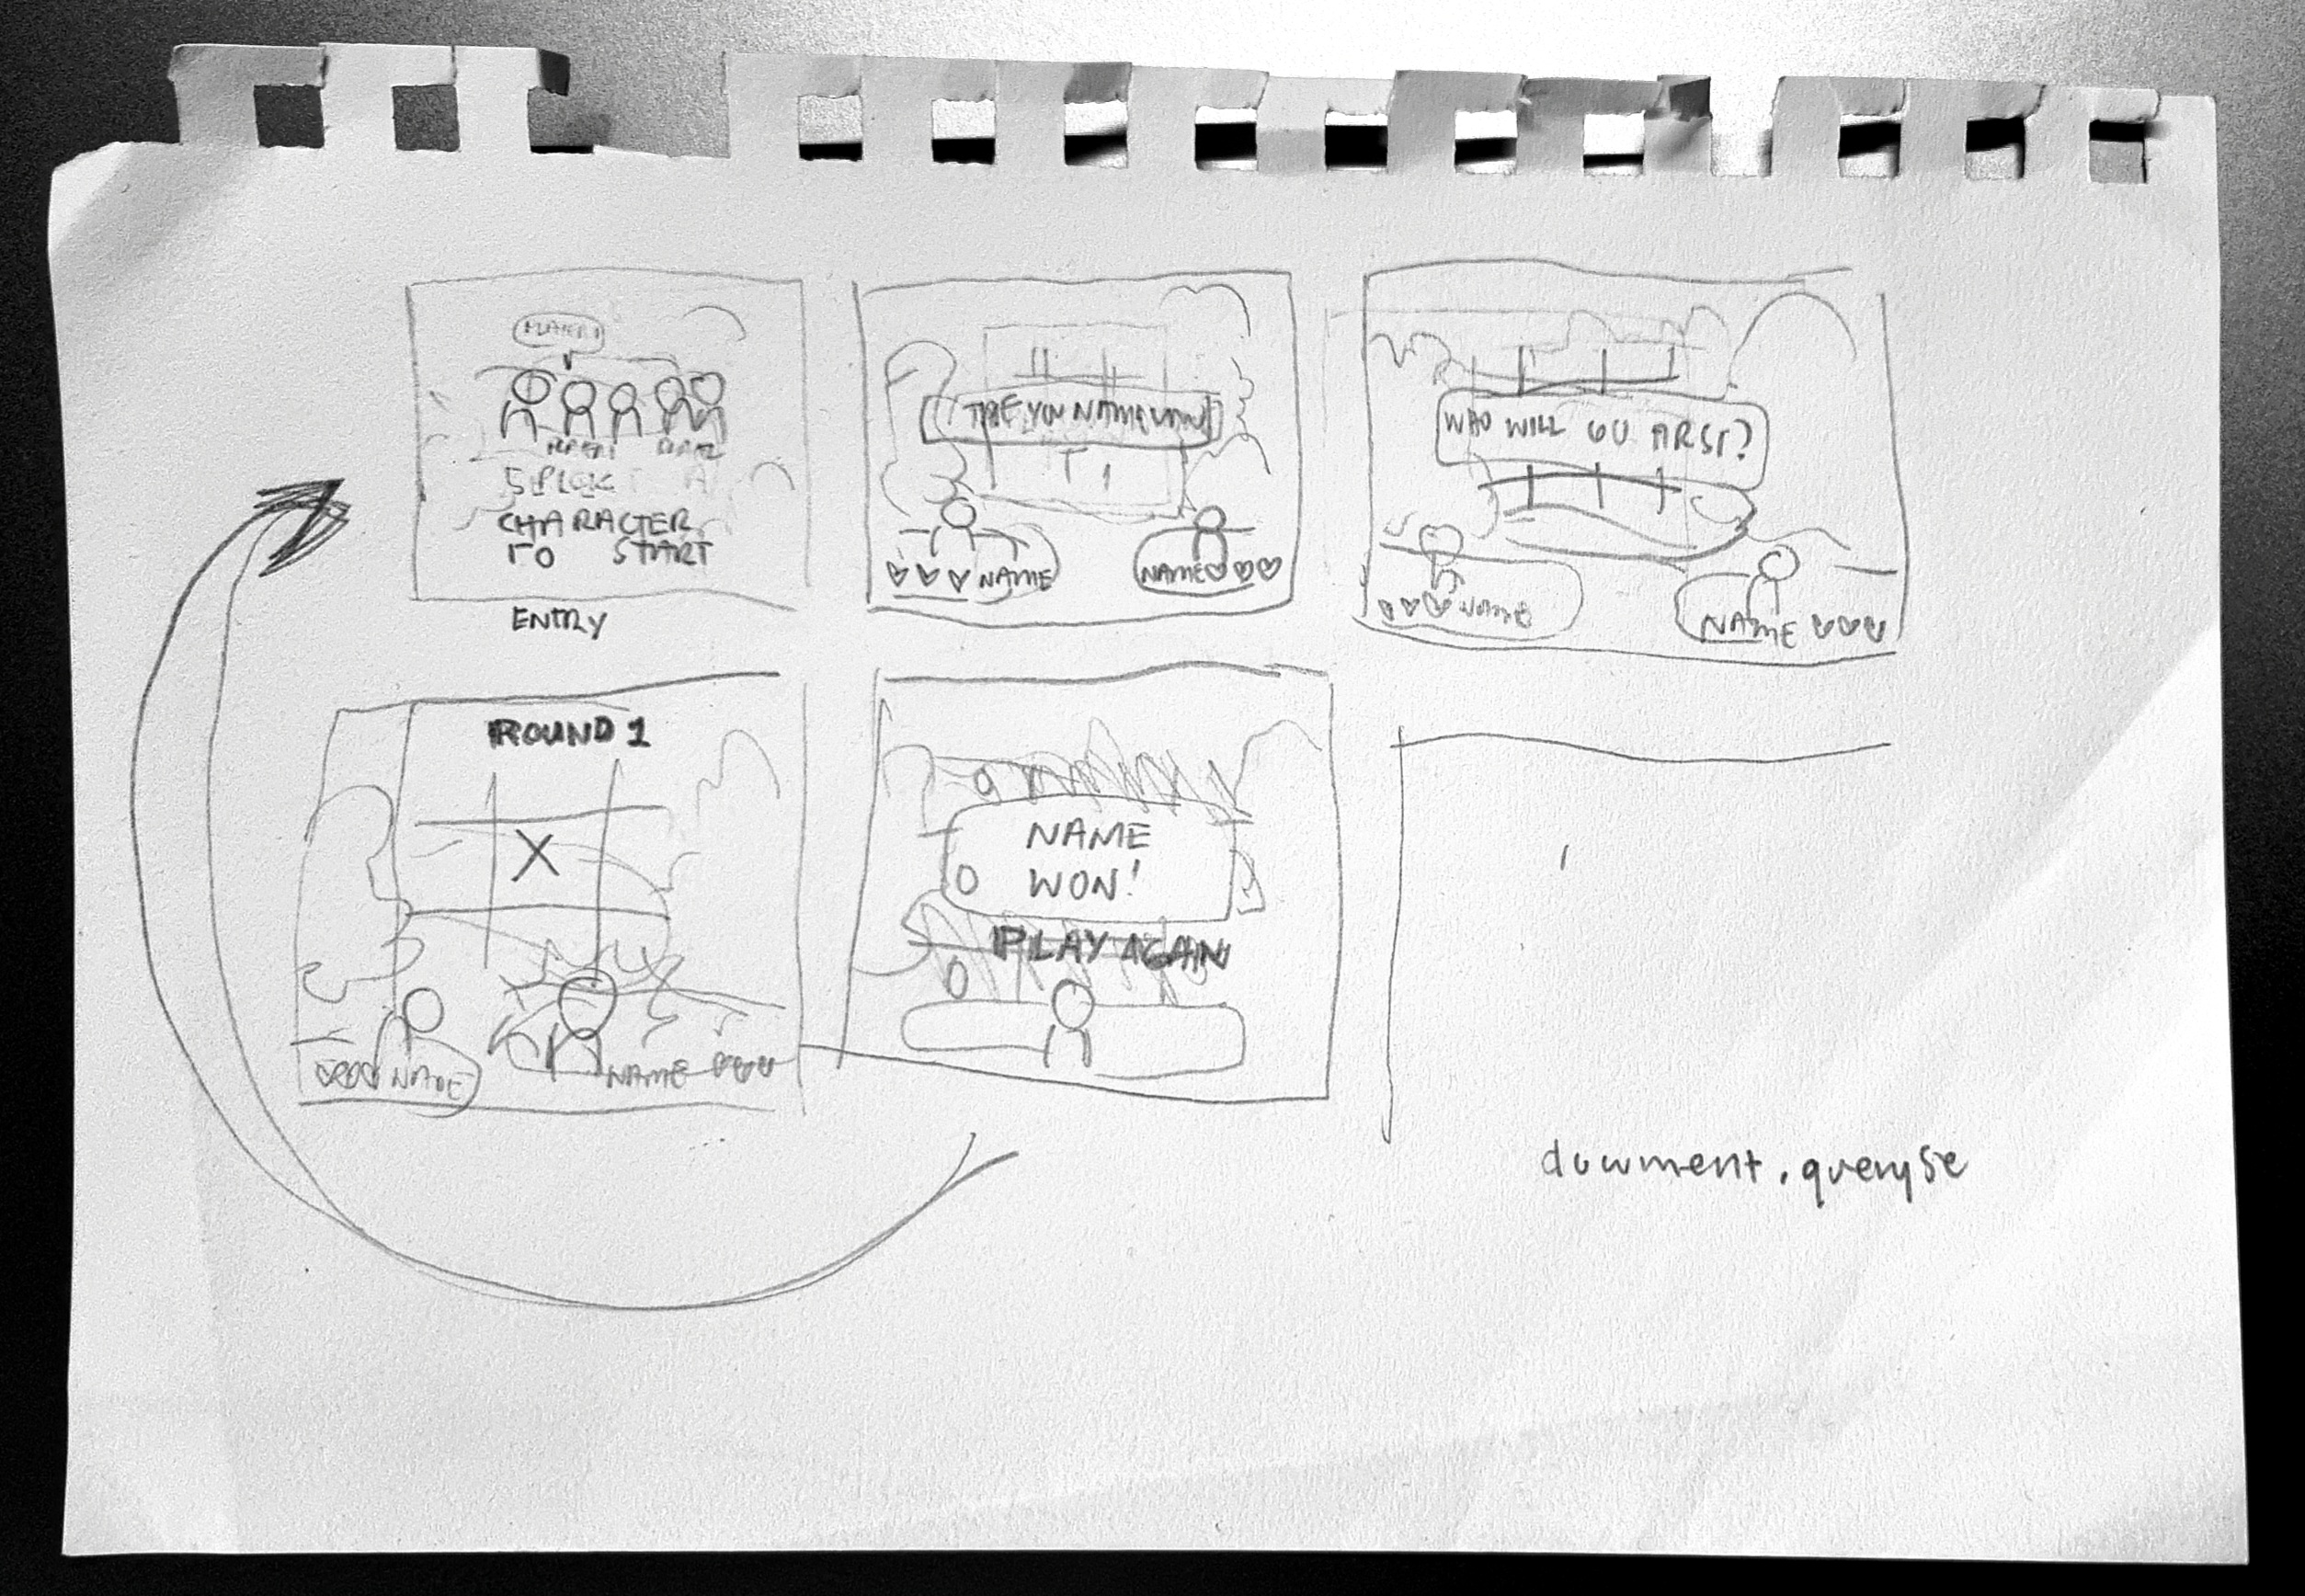 PLAYER 1
SELECT A
CHARACTER
TO START
ENTRY
NAME
NAME
WHO WILL GO FIRST?
NAME
NAME
ROUND 1
X
NAME
NAME
NAME
WON!
PLAY AGAIN
document.queryse